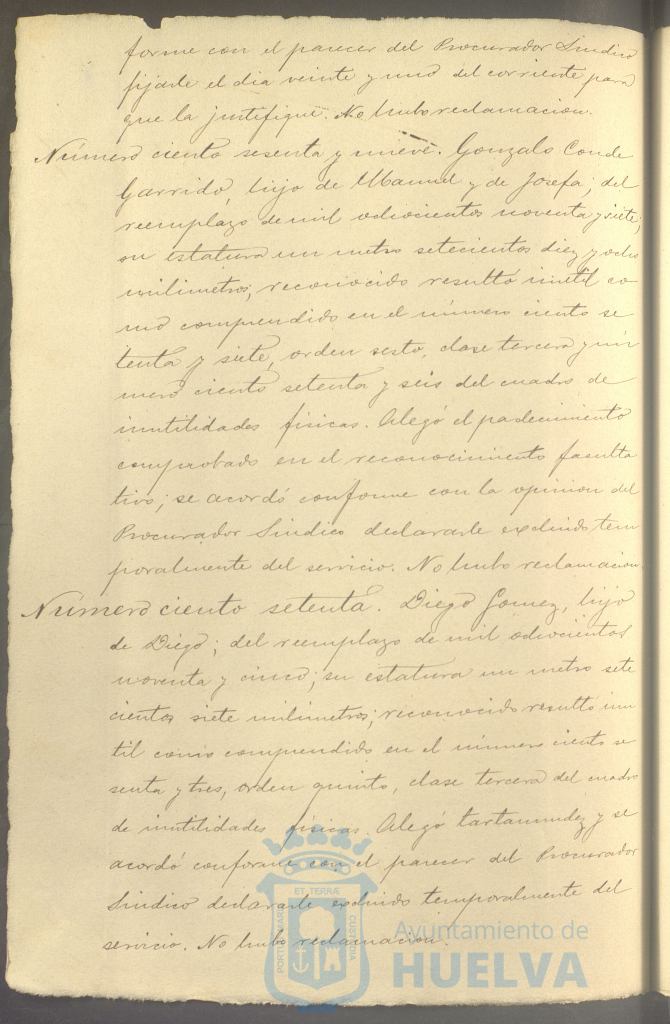 forme con el parecer del Procurador Sindico
fijarle el dia veinte y uno del corriente para
que la justifique. No hubo reclamacion.
Número ciento sesenta y nueve. Gonzalo Conde
Garrido, hijo de Manuel y de Josefa; del
reemplazo de mil ochocientos noventa y siete;
su estatura un metro setecientos diez y ocho
milimetros, reconocido resultó inutil co-
mo comprendido en el número ciento se
tenta y siete, orden sesto, clase tercera y nú
mero ciento setenta y seis del cuadro de
inutilidades fisicas. Alegó el padecimiento
comprobado en el reconocimiento faculta
tivo; se acordó conforme con la opinion del
Procurador Sindico declararle excluido tem
poralmente del servicio. No hubo reclamacion.
Número ciento setenta. Diego Gomez, hijo
de Diego; del reemplazo de mil ochocientos
noventa y cinco; su estatura un metro sete
cientos siete milimetros; reconocido resultó inu
til como comprendido en el número ciento se
senta y tres, orden quinto, clase tercera del cuadro
de inutilidades fisicas. Alegó tartamudez y se
acordó conforme con el parecer del Procurador
Sindico declararle excluido temporalmente del
servicio. No hubo reclamacion.
PORTUS MARIS ET TERRÆ CUSTODIA
Ayuntamiento de
HUELVA